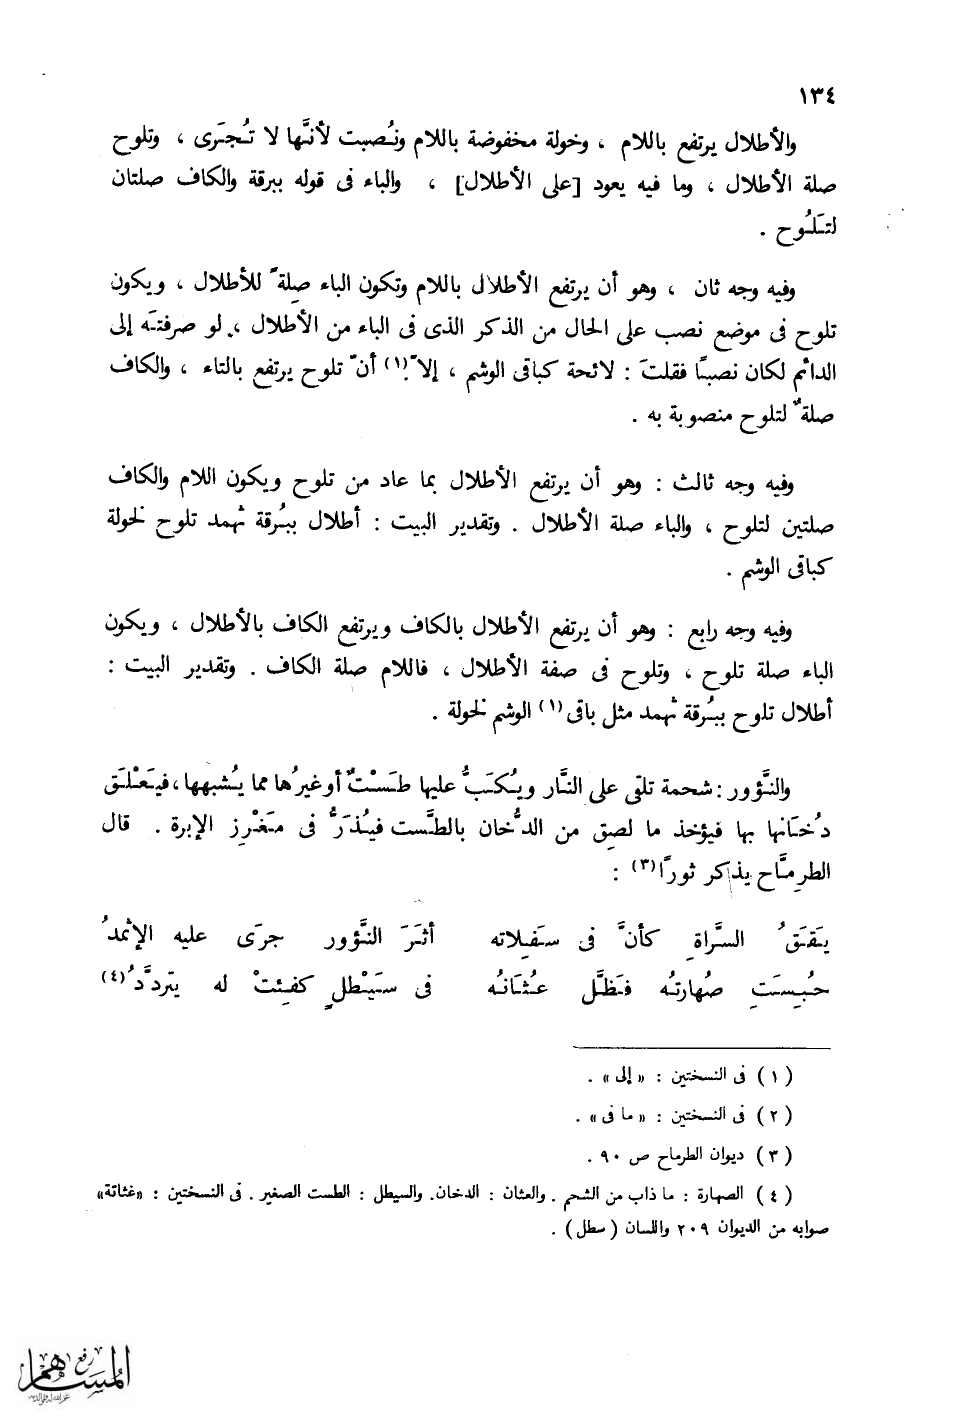 ١٣٤
والأطلال يرتفع باللام ، وخولة مخفوضة باللام ونُصبت لأنَّها لا تُجرَى ، وتلوح
صلة الأطلال ، وما فيه يعود [على الأطلال] ، والباء فى قوله ببرقة والكاف صلتان
لتَلُوح .
وفيه وجه ثان ، وهو أن يرتفع الأطلال باللام وتكون الباء صِلةً للأطلال ، ويكون
تلوح فى موضع نصب على الحال من الذكر الذى فى الباء من الأطلال ، لو صرفتَه إلى
الدائم لكان نصبًا فقلتَ : لائحة كباقى الوشم ، إلاّ (١) أنّ تلوح يرتفع بالتاء ، والكاف
صلةٌ لتلوح منصوبة به .
وفيه وجه ثالث : وهو أن يرتفع الأطلال بما عاد من تلوح ويكون اللام والكاف
صلتين لتلوح ، والباء صلة الأطلال . وتقدير البيت : أطلال ببُرقة ثهمد تلوح لخولة
كباقى الوشم .
وفيه وجه رابع : وهو أن يرتفع الأطلال بالكاف ويرتفع الكاف بالأطلال ، ويكون
الباء صلة تلوح ، وتلوح فى صفة الأطلال ، فاللام صلة الكاف . وتقدير البيت :
أطلال تلوح ببُرقة ثهمد مثل باقى (١) الوشم لخولة .
والنَّؤور : شحمة تلقى على النَّار ويُكَبُّ عليها طَسْتٌ أو غيرُها مما يُشبهها ، فيَعْلَق
دُخَانها بها فيؤخذ ما لصِق من الدُّخان بالطَّست فيُذَرُّ فى مَغْرِز الإبرة . قال
الطرِمَّاح يذكر ثورًا (٣) :
يَقَقُ السَّراةِ كأنَّ فى سَفِلاته أثَرَ النَّؤور جرَى عليه الإثمدُ
حُبِسَتِ صُهارتُه فظَلَّ عُثَانُه فى سَيْطلٍ كفِئتْ له يتردَّدُ (٤)
(١) فى النسختين : «إلى» .
(٢) فى النسختين : «ما فى» .
(٣) ديوان الطرماح ص ٩٠ .
(٤) الصهارة : ما ذاب من الشحم . والعثان : الدخان. والسيطل : الطست الصغير . فى النسختين : «غثاتة»
صوابه من الديوان ٢٠٩ واللسان (سطل) .
رفع
المساهم